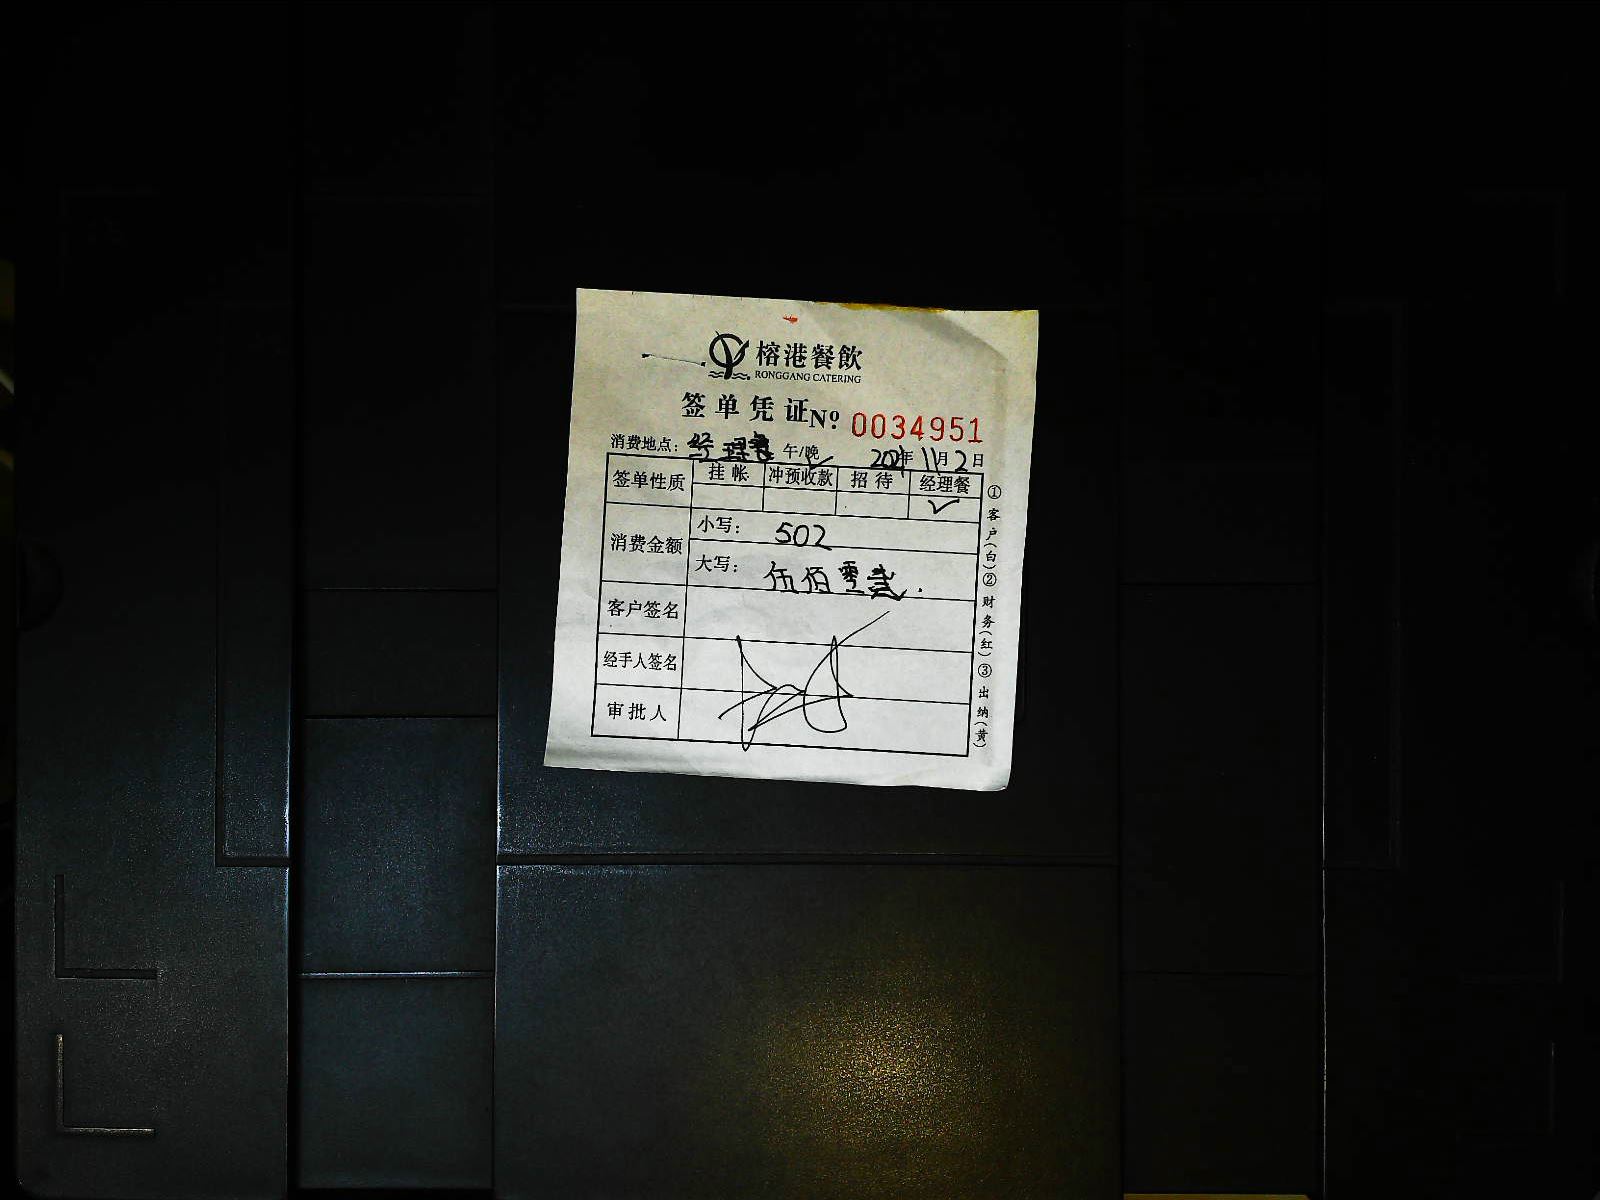 榕港餐飲
RONGGANG CATERING
签单凭证 № 0034951
消费地点：经理餐 午/晚✓ 2021年11月2日
签单性质 挂帐 冲预收款 招待 经理餐
✓
消费金额 小写：502
大写：伍佰零贰.
客户签名
经手人签名
审批人
①客户(白)②财务(红)③出纳(黄)